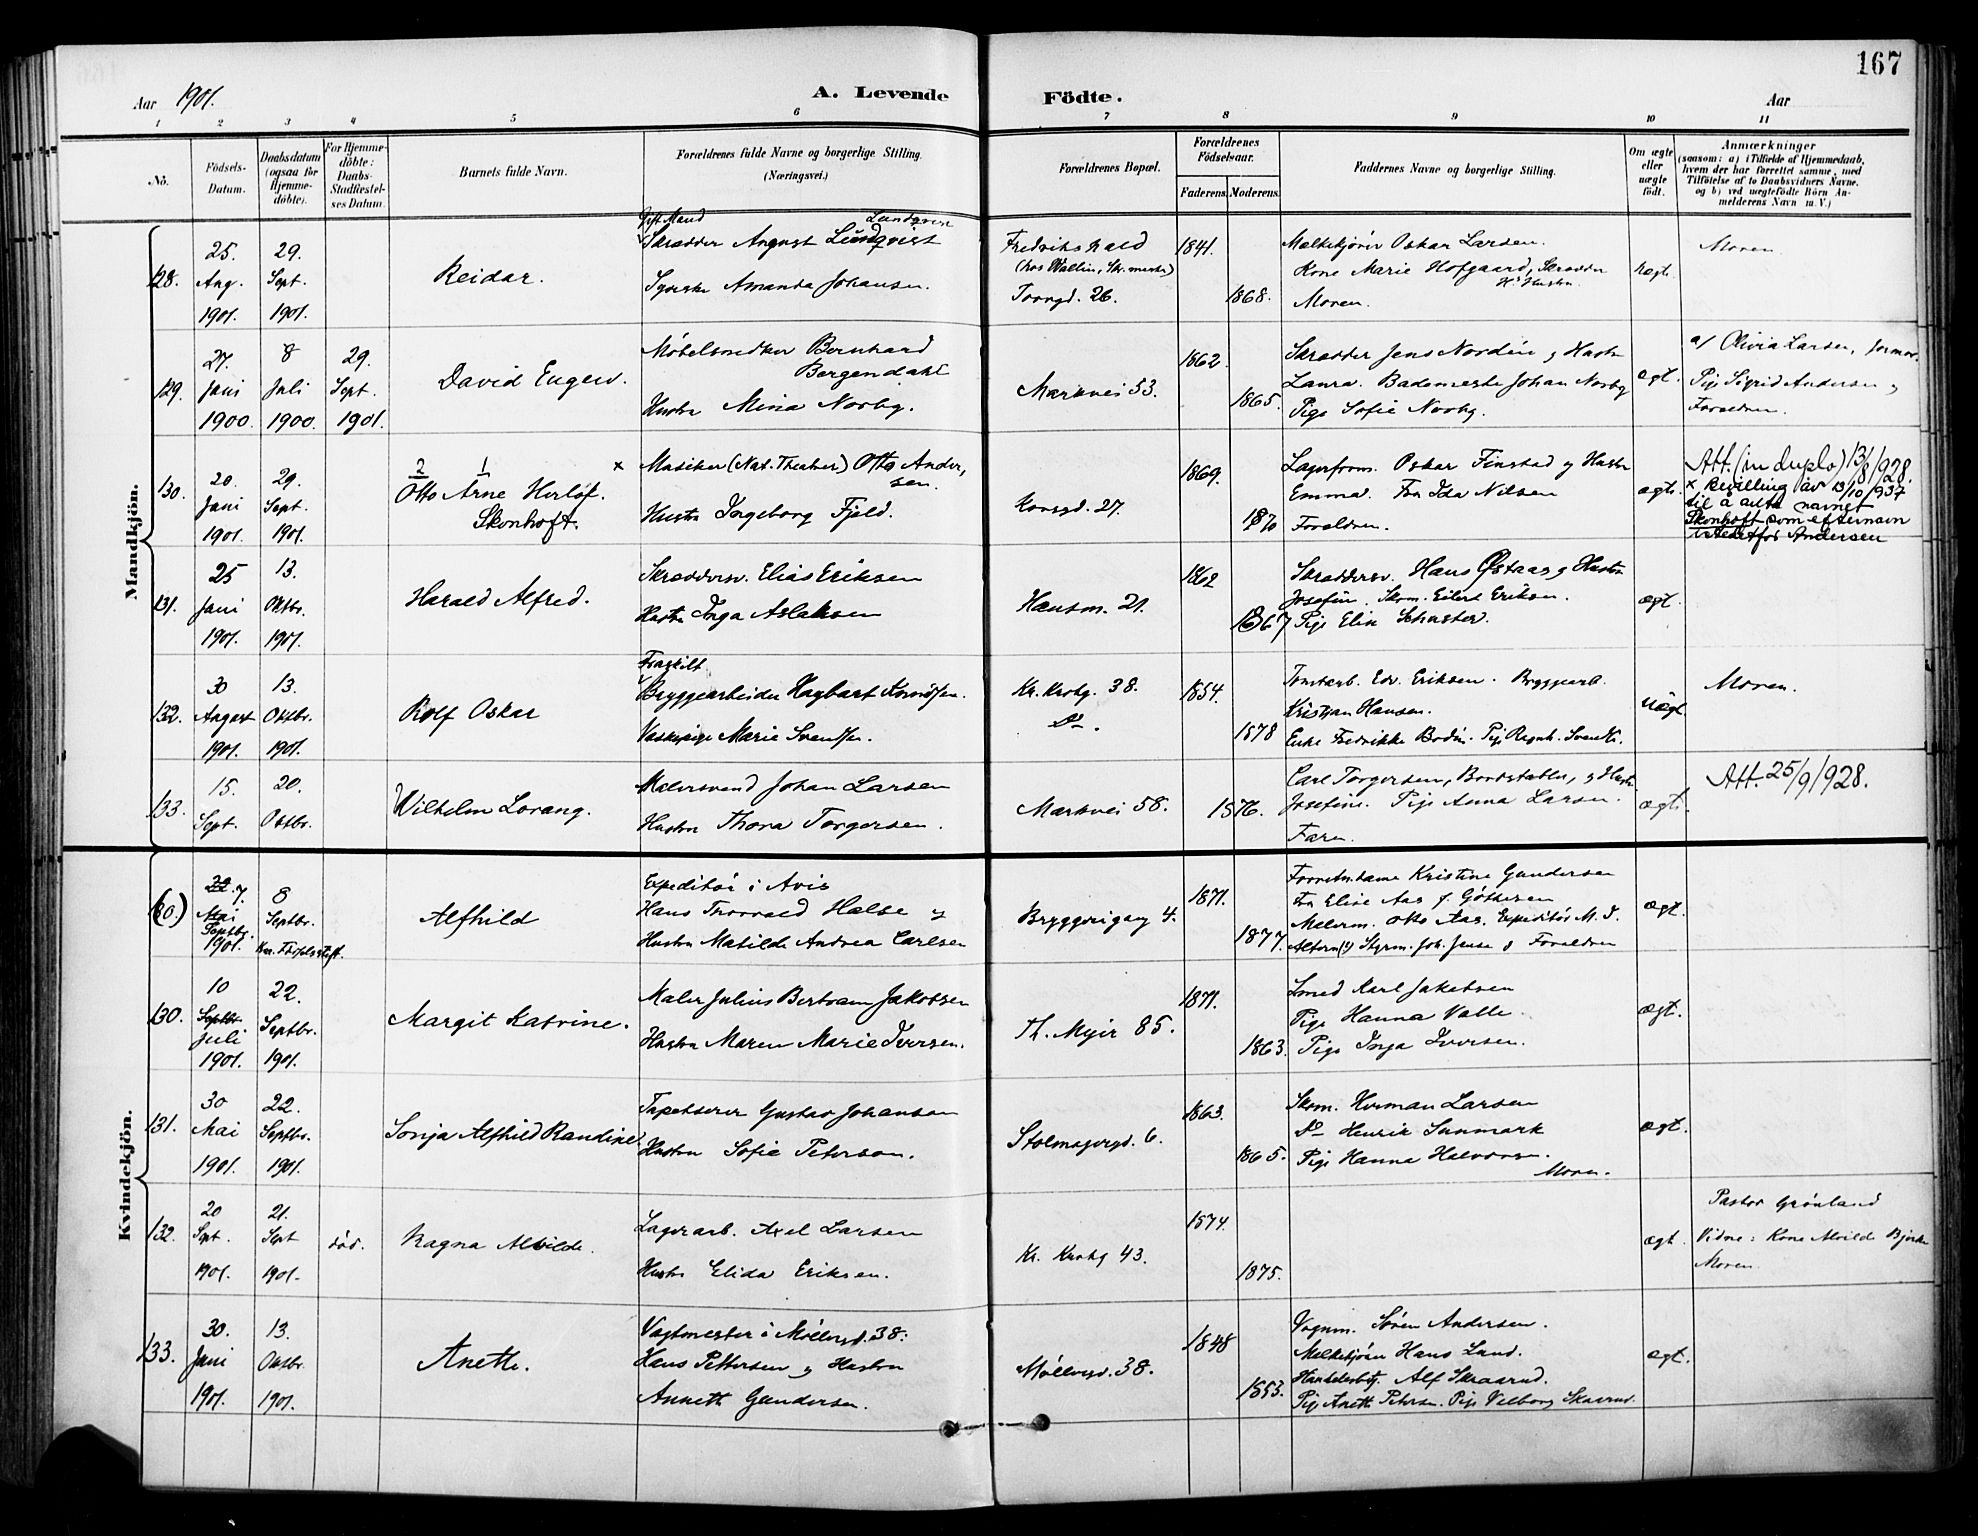 167
Aar 1901. A. Levende Födte. Aar
1 2 3 4 5 6 7 8 9 10 11
No. Födsels-Datum. Daabsdatum (ogsaa for Hjemmedöbte). For Hjemmedöbte: Daabs-Stadfæstelses Datum. Barnets fulde Navn. Forældrenes fulde Navne og borgerlige Stilling. (Næringsvei.) Forældrenes Bopæl. Forældrenes Födselsaar. Faderens. Moderens. Faddernes Navne og borgerlige Stilling. Om ægte eller uægte födt. Anmærkninger (saasom: a) i Tilfælde af Hjemmedaab, hvem der har forrettet samme, med Tilföielse af to Daabsvidners Navne, og b) ved uægtefödte Börn Anmelderens Navn m. V.)
Mandkjön.
128. 25. Aug. 1901. 29. Sept. 1901. Reidar.
Gift Mand Lundqvist
Skrædder August Lundqvist
Syerske Amanda Johansen.
Fredrikshald
(hos Wallin, Sk.mester)
Torvgd. 26.
1841. 1868.
Melkekjörer Oskar Larsen.
Kone Marie Hofgaard, Skrædder
Hs Hustru
Moren.
uægt. Moren
129. 27. Juni 1900. 8 Juli 1900. 29. Sept. 1901. David Eugen.
Möbelsnedker Bernhard
Bergendahl
Hustru Mina Norby.
Markvei 53. 1862. 1865.
Skrædder Jens Nordén og Hustru
Laura. Bademester Johan Norby
Pige Sofie Norby.
ægt.
a/ Olivia Larsen, jormor.
Pige Sigrid Andersen og
Forældren.
130. 20. Juni 1901. 29. Sept. 1901.
2 1
Otto Arne Herlöf.
Skonhoft.
x Musiker (Nat. Theatner) Otto Andersen.
Hustru Ingeborg Fjeld.
Korsgd. 27. 1869. 1870
Lagerform. Oskar Finstad og Hustru
Emma. Fru Ida Nilsen
Forældren.
ægt.
Att. (in duplo) 13/8/1928.
x Bevilling av 13/10/1937
til å anta navnet
Skonhoft som efternavn
istedetfor Andersen
131. 25 Juni 1901. 13. Oktbr. 1901. Harald Alfred.
Skræddersv. Elias Eriksen
Hustru Inga Aslaksen
Hausm. 21. 1862 1867
Skræddersv. Hans Østaas og Hustru
Josefine. Skom. Eilert Eriksen.
Pige Elin Schuster.
ægt.
132. 30 August 1901. 13. Oktbr. 1901. Rolf Oskar
Fraskilt
Bryggearbeider Hagbart
Vaskepige Marie Svendsen.
Kr. Krohg. 38.
Do.
1854. 1878
Tomtearb. Edv. Eriksen. Bryggearb.
Kristian Hansen.
Enke Fredrikke Bodin. Pige Ragnh. Svendsen.
uægt. Moren.
133. 15. Sept. 20. Oktbr. Wilhelm Lorang.
Malersvend Johan Larsen
Hustru Thora Torgersen.
Markvei 58. 1876.
Carl Torgersen, Bordstabler, og Hustru
Josefine. Pige Anna Larsen.
Faren
ægt. Att. 25/9/1928.
Kvindekjön.
(80.) 22. 7. Mai Septbr. 1901. 8 Septbr. Alfhild
Expeditör i Avis
Hans Thorvald Halse og
Hustru Matilde Andrea Carlsen
Bryggerigang 4. 1871. 1877.
Kristine Gundersen
Fru Elise Aas f. Göthesen
Malerm. Otto Aas. Expeditör M. J.
Styrm. Joh. Jense og Forældren
ægt.
130. 10 Septbr. Juli 1901. 22. Septbr. 1901. Margit Katrine.
Maler Julius Bertram Jakobsen
Hustru Maren Marie Iversen.
Th. Meyer 85. 1871. 1863.
Smed Karl Jakobsen
Pige Hanna Valle.
Pige Inga Iversen.
ægt.
131. 30 Mai 1901. 22. Septbr. 1901. Sonja Alfhild Randine.
Tapetserer Gustav Johansen
Hustru Sofie Petersen.
Stolmagergd. 6. 1863. 1865.
Skom. Herman Larsen
Do Henrik Sunmark
Pige Hanna Halvorsen.
Moren.
ægt.
132. 20 Spt. 1901. 21. Sept 1901. död. Ragna Alvilde.
Lagerarb. Axel Larsen
Hustru Elida Eriksen.
Kr. Krohg 43. 1874. 1875.
ægt.
Pastor Grönland
Vidne: Kone Alvilde Bjerke
Moren
133. 30. Juni 1901. 13. Oktbr. 1901. Anette.
Vagtmester i Möllergd. 38:
Hans Pettersen og Hustru
Annette Gundersen.
Möllergd. 38. 1848 1853.
Vognm. Sören Andersen.
Melkekjörer Hans Lund.
Handelsbetj. Alf Skraarud.
Pige Anette Petersen. Pige Valborg Skaarud.
ægt.